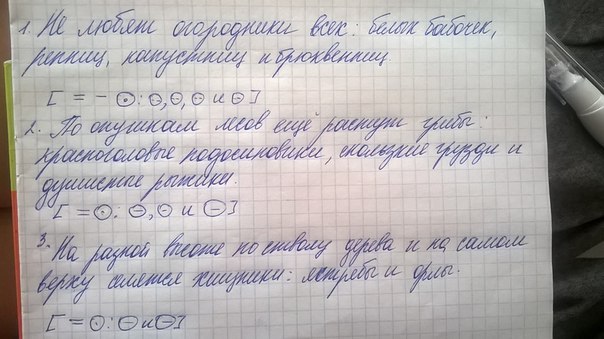 1. Не любят огородники всех: белых бабочек,
репниц, капустниц и брюквенниц
[ = - ⊙: ⊖, ⊖, ⊖ и ⊖]
2. По опушкам лесов ещё растут грибы:
красноголовые подосиновики, скользкие грузди и
душистые рыжики.
[ = ⊙: ⊖, ⊖ и ⊖]
3. На разной высоте по стволу дерева и на самом
верху селятся хищники: ястребы и орлы.
[ = ⊙: ⊖ и ⊖]